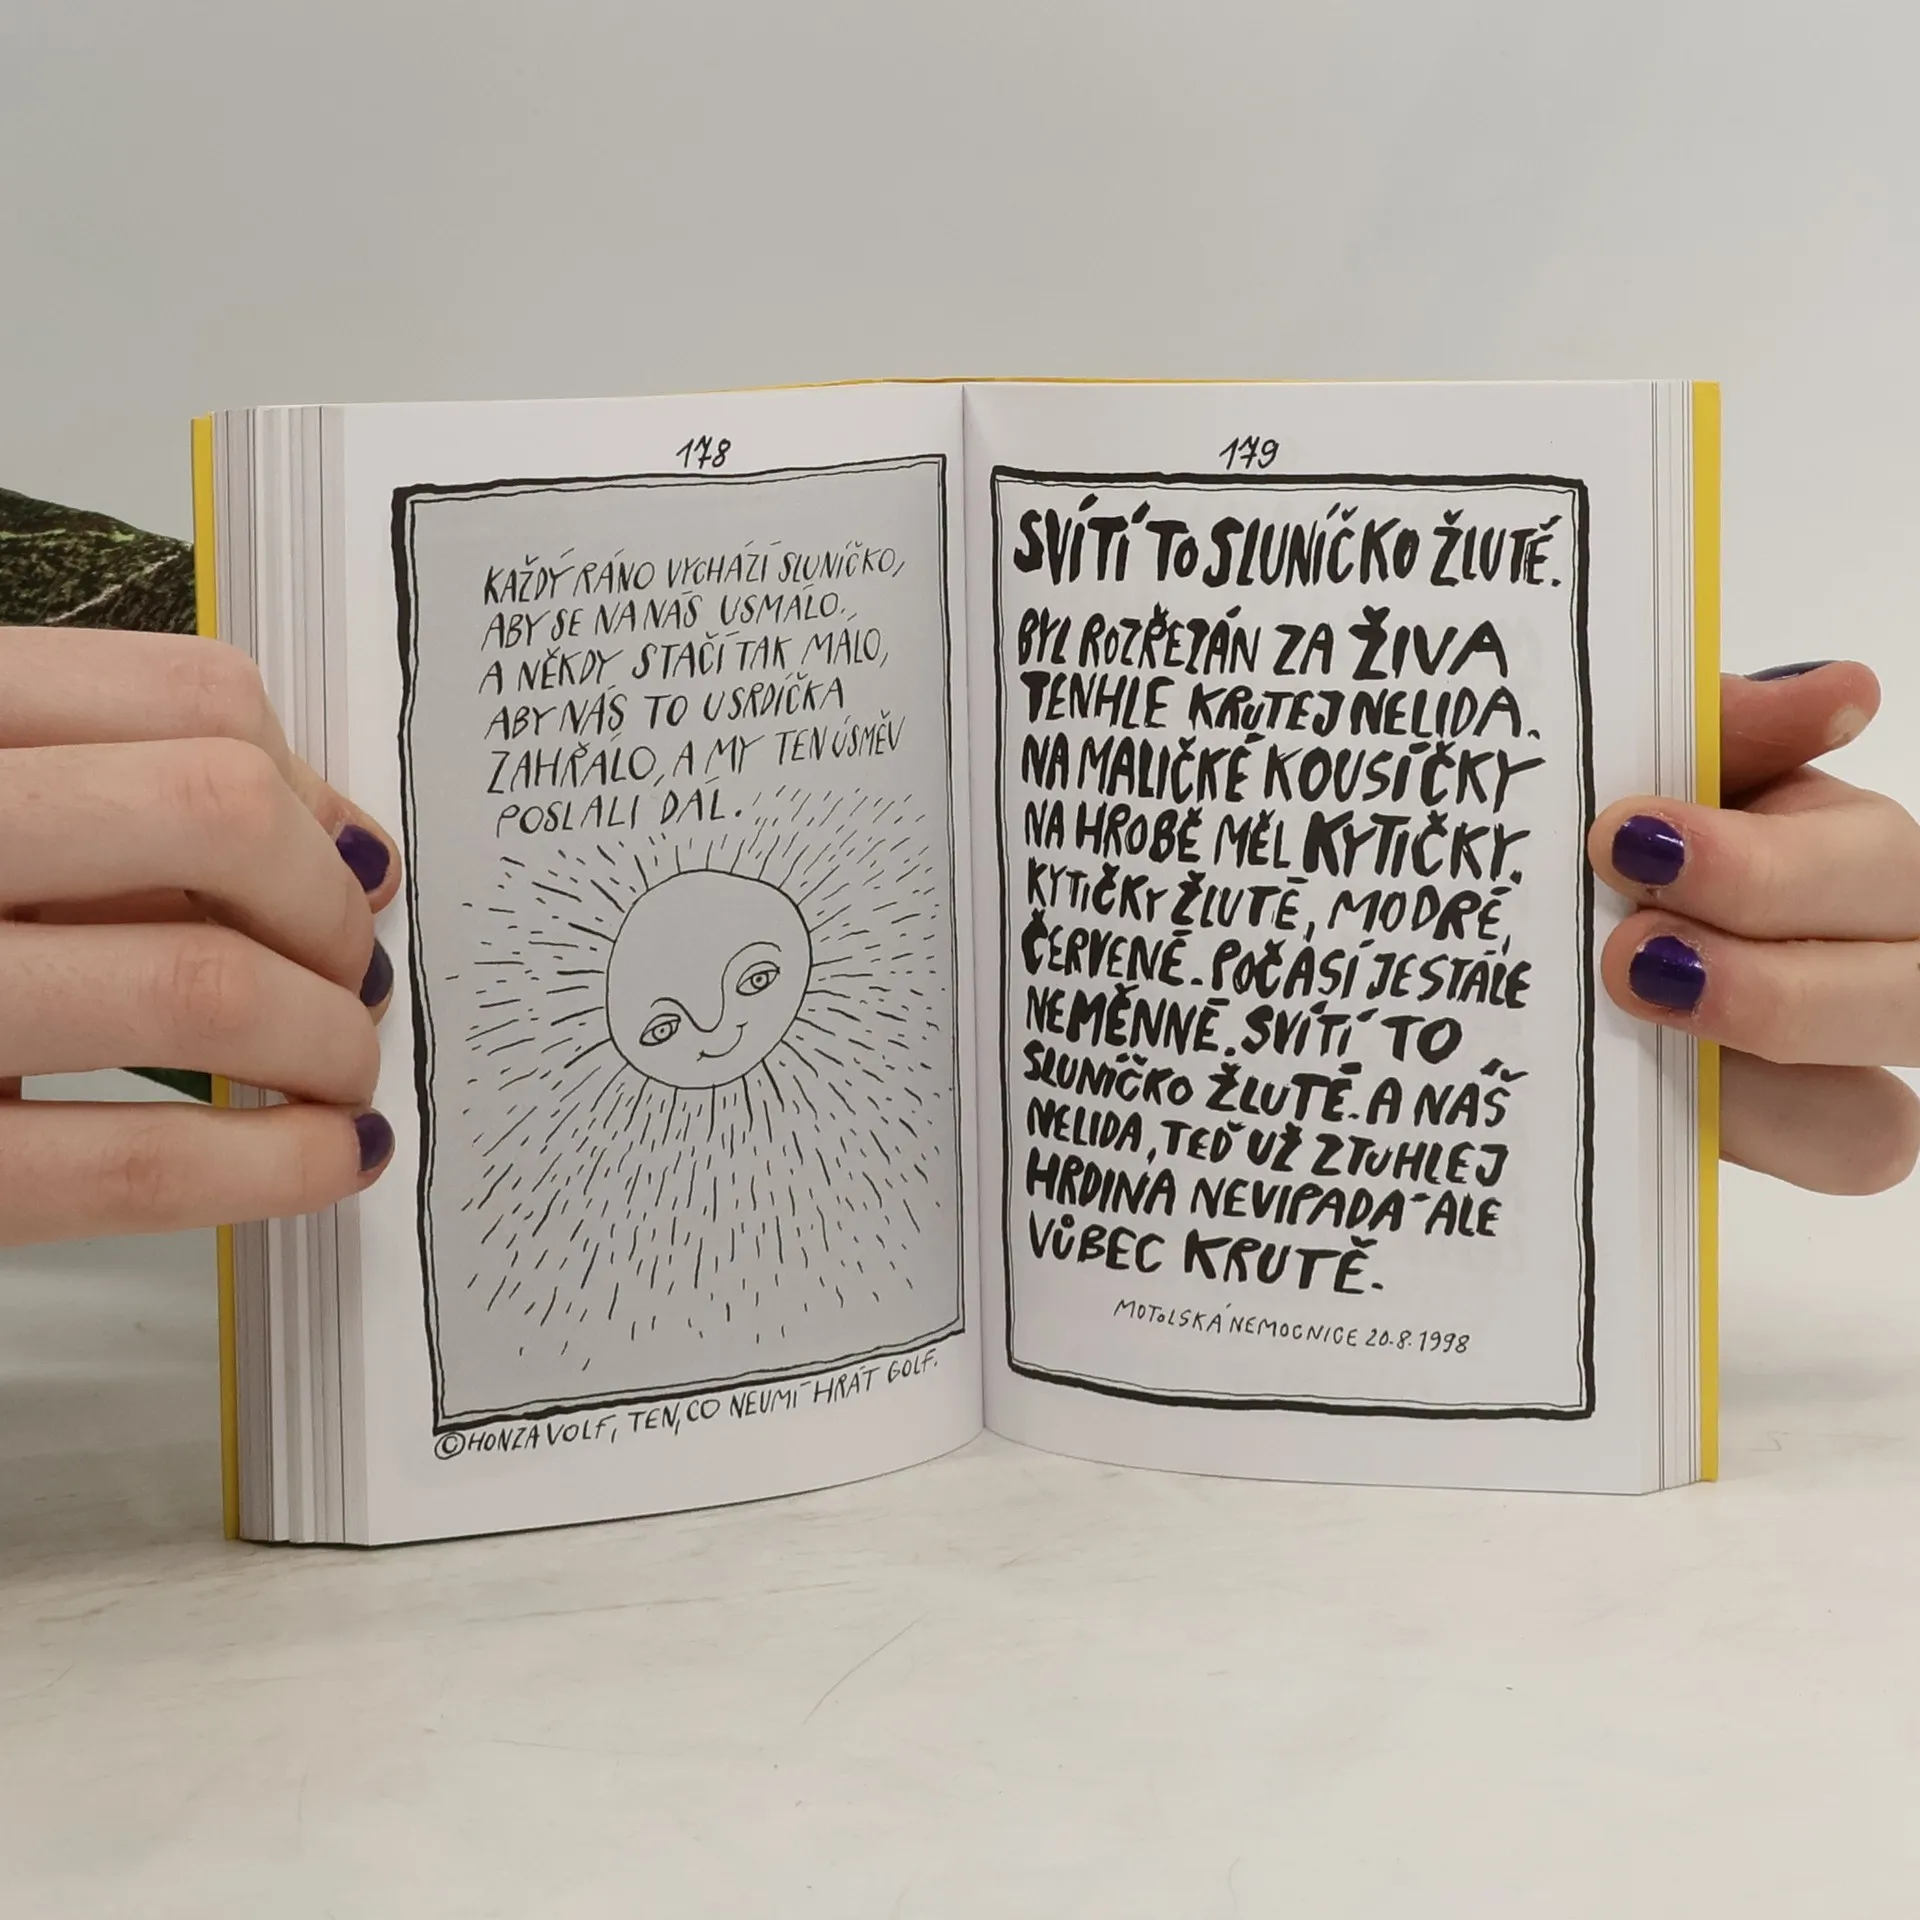 178
KAŽDÝ RÁNO VYCHÁZÍ SLUNÍČKO,
ABY SE NA NÁS USMÁLO.
A NĚKDY STAČÍ TAK MÁLO,
ABY NÁS TO U SRDÍČKA
ZAHŘÁLO, A MY TEN ÚSMĚV
POSLALI DÁL.
©HONZA VOLF, TEN, CO NEUMÍ HRÁT GOLF.
179
SVÍTÍ TO SLUNÍČKO ŽLUTÉ.
BYL ROZŘEZÁN ZA ŽIVA
TENHLE KRUTEJ NELIDA.
NA MALIČKÉ KOUSÍČKY
NA HROBĚ MĚL KYTIČKY.
KYTIČKY ŽLUTÉ, MODRÉ,
ČERVENÉ. POČASÍ JE STÁLE
NEMĚNNÉ. SVÍTÍ TO
SLUNÍČKO ŽLUTÉ. A NÁŠ
NELIDA, TEĎ UŽ ZTUHLEJ
HRDINA NEVIPADÁ ALE
VŮBEC KRUTĚ.
MOTOLSKÁ NEMOCNICE 20.8.1998